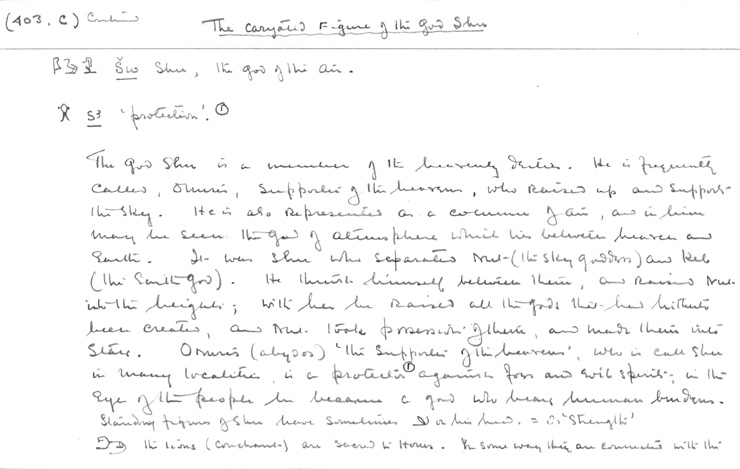 (403. C) Continued The caryatid Figure of the God Shu
Šw Shu, the god of the air.
s3 'protection'. ①
The God Shu is a member of the heavenly deities. He is frequently
called, Onuris, Supporter of the heavens, who raised up and support
the sky. He is also represented as a column of air, and in him
may be seen the God of atmosphere which lies between heaven and
Earth. It was Shu who separated Nut (the sky goddess) and Keb
(the Earth God). He thrust himself between them, and raised Nut
into the heights; with her he raised all the gods that had hitherto
been created, and Nut took possession of them, and made them into
Stars. Onuris (abydos) 'the Supporter of the heavens', who is call Shu
in many localities, is a protector ① against foes and evil spirits; in the
Eye of the people he became a god who bears human burdens.
Standing figures of Shu have sometimes on his head. = 'Strength'
the lions (couchant) are sacred to Horus. In some way they are connected with the